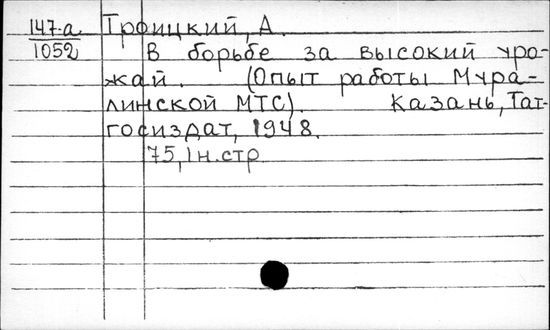 147-а Троицкий, А.
1052 В борьбе за высокий уро-
жай. (Опыт работы Мура-
линской МТС). Казань, Тат-
госиздат, 1948.
75, 1 н. стр